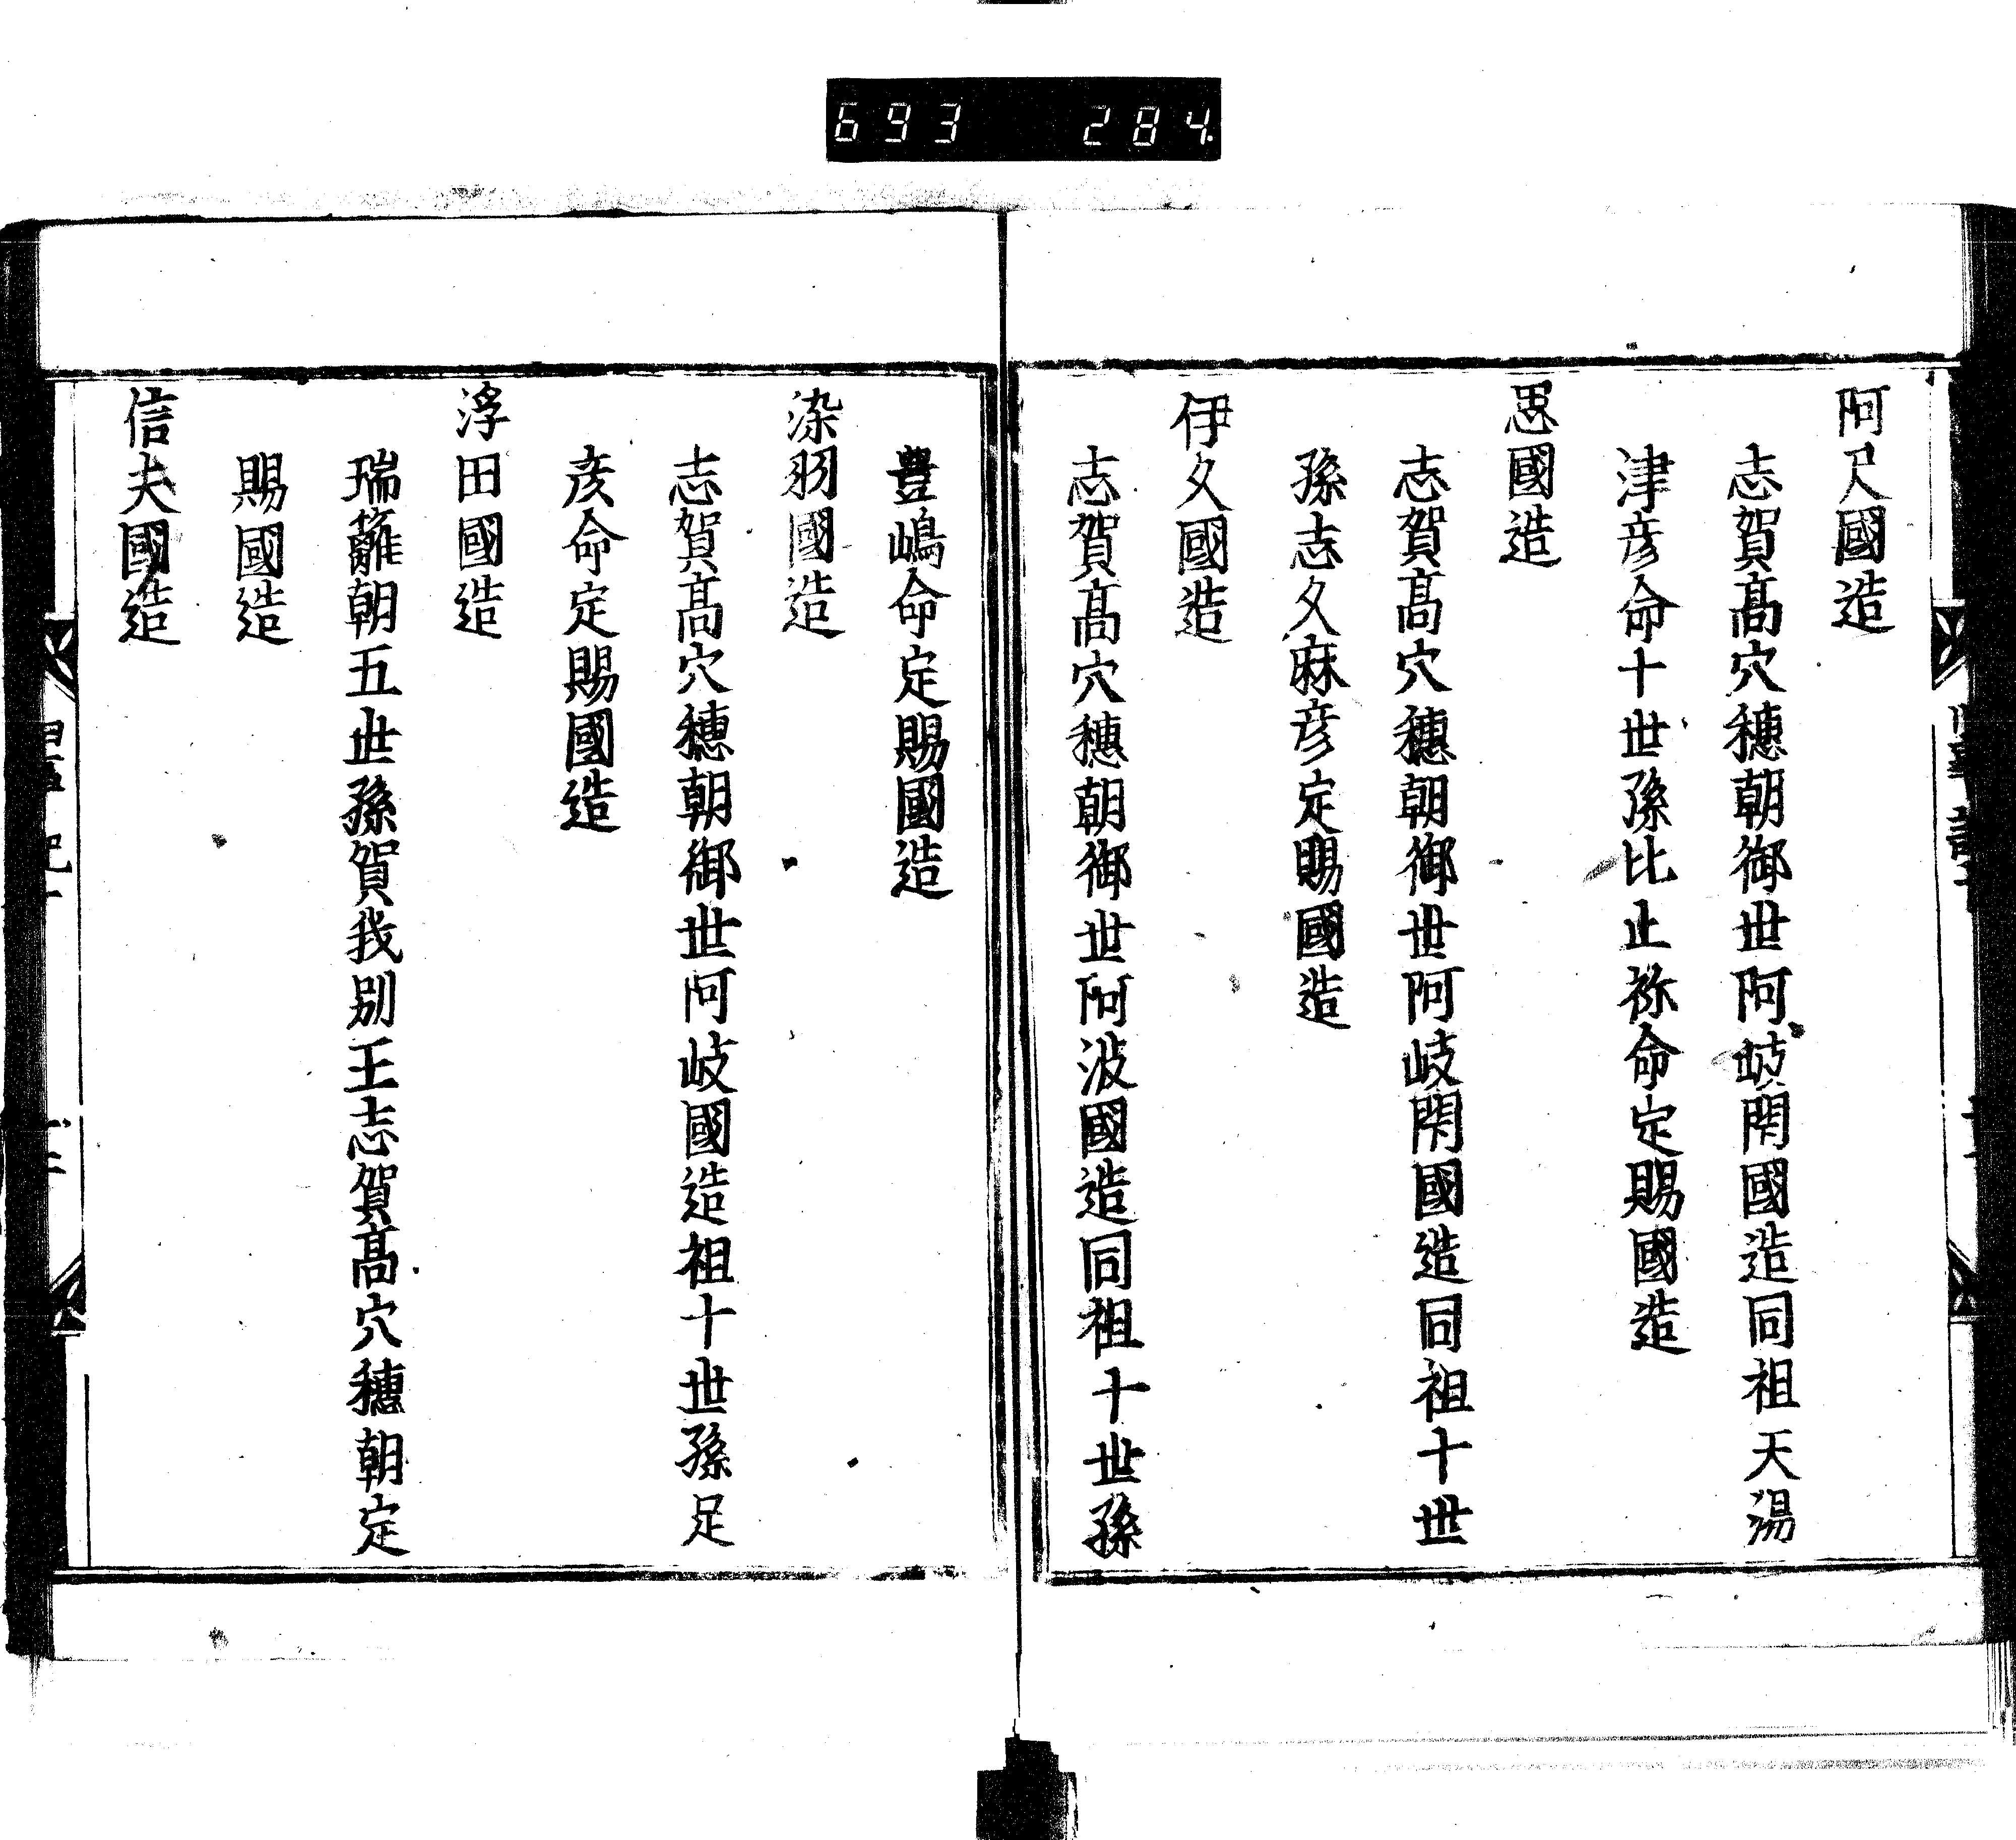 693 284
阿尺國造
志賀髙穴穗朝御世阿岐閇國造同祖天湯
津彦命十世孫比止祢命定賜國造
思國造
志賀髙穴穗朝御世阿岐閇國造同祖十世
孫志久麻彦定賜國造
伊久國造
志賀髙穴穗朝御世阿波國造同祖十世孫
豊嶋命定賜國造
染羽國造
志賀髙穴穗朝御世阿岐國造祖十世孫足
彦命定賜國造
浮田國造
瑞籬朝五世孫賀我别王志賀髙穴穗朝定
賜國造
信夫國造